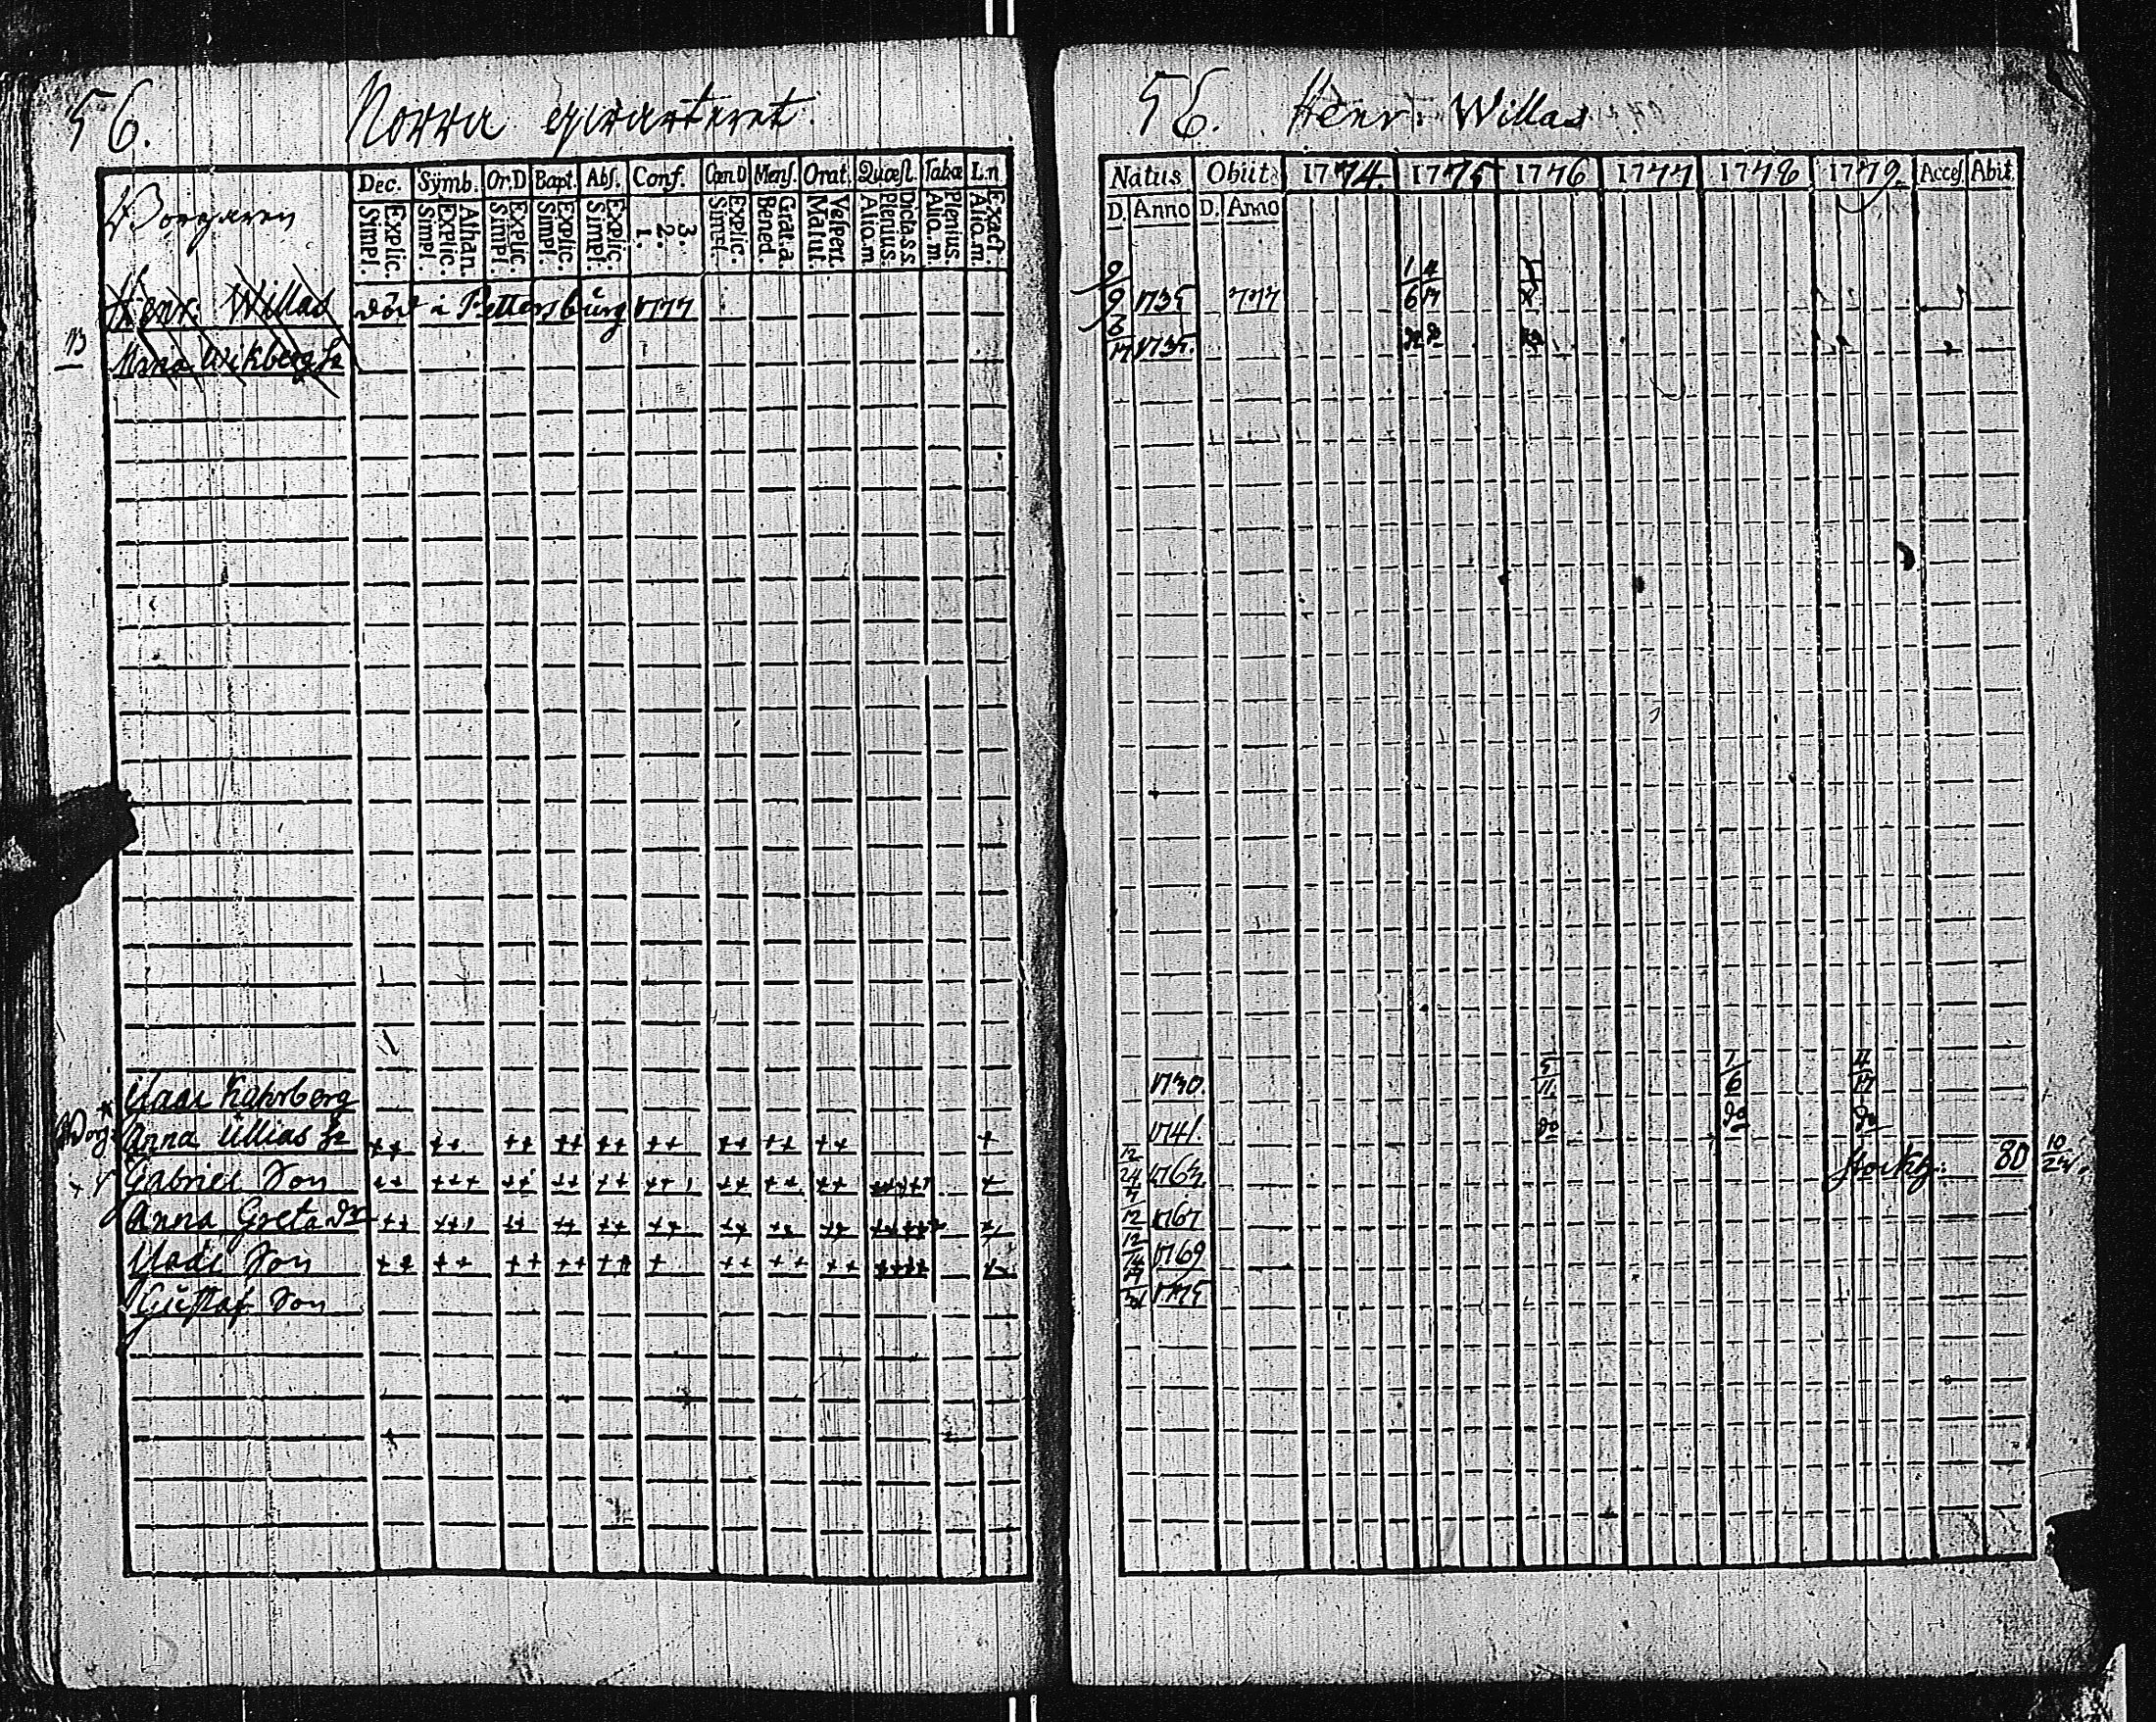 56. Norra qvarteret.
Dec. Symb. Or.D Bapt. Abs. Conf. Cœn D Mens. Orat. Quæst. Tabæ L.n
Explic. Simpl. Athan. Explic. Simpl. Explic. Simpl. Explic. Simpl. Explic. Simpl. 3. 2. 1. Explic. Simpl. Grat. a. Bened. Vespert. Matut. Dicta s.s. Plenius. Alio.m Plenius. Alio. m. Exact. Alio.m.
Borgaren
Henr. Willas död i Pettersburg 1777
Anna Wikberg h
Kahrberg
Borg. Anna Ullias h ++ ++ ++ ++ ++ ++ ++ ++ ++ +
Gabriel Son ++ +++ ++ ++ ++ ++ ++ ++
Anna Greta dr ++ ++ ++ ++ ++ ++
Son ++ ++ ++ ++ ++ + ++ ++ ++
Gustaf Son
56. Henr. Willas
Natus Obiit 1774. 1775 1776 1777 1778 1779 Access. Abit
D. Anno D. Anno
1735 777 1/6 4/17
17 1735.
1730. 5/11 1/6 4/17
1741. do do do
12/24 1763 Stockh. 80 10/24
12 1767
12/14 1769
1775